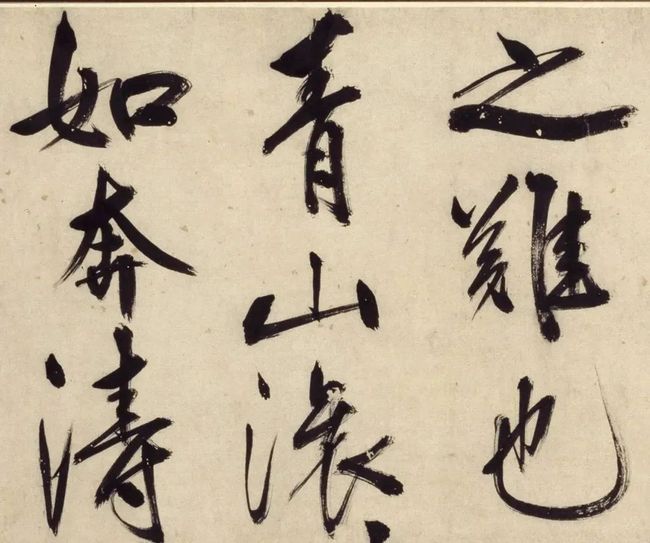 之難也
青山滚〻
如奔濤